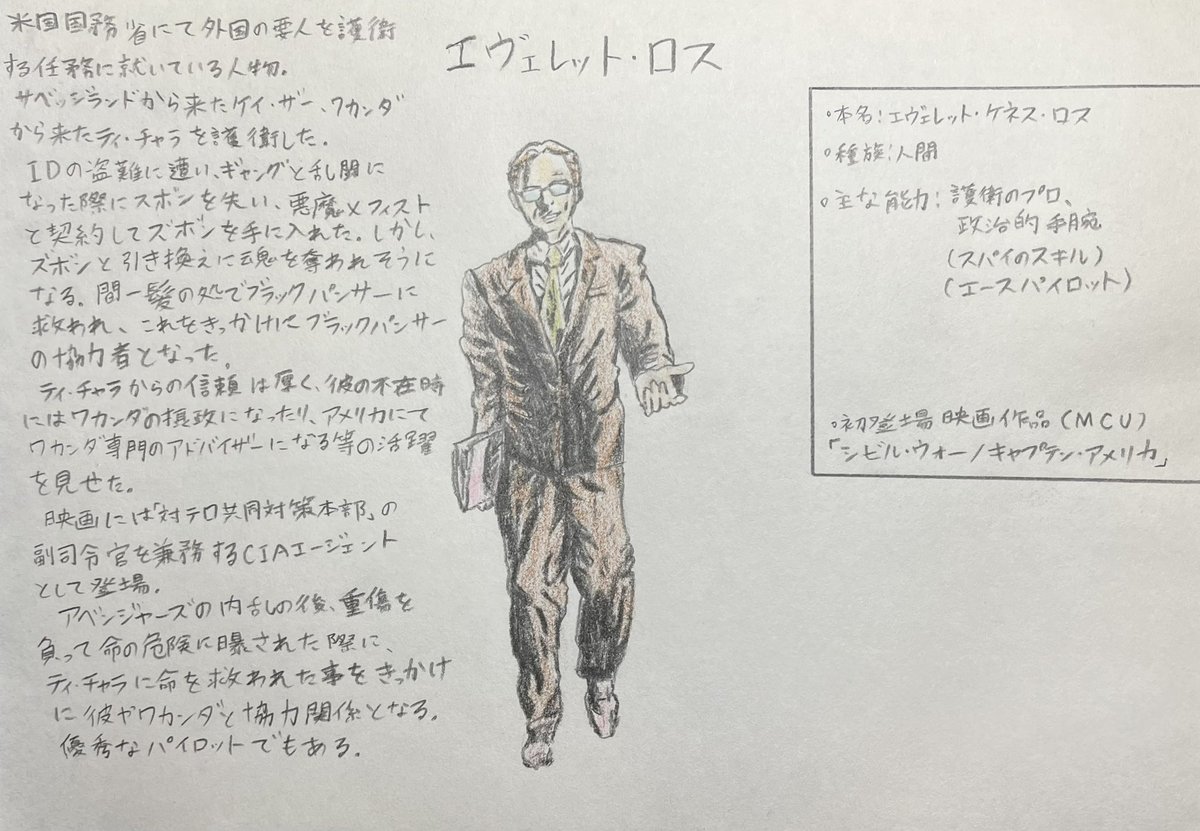 エヴェレット・ロス
米国国務省にて外国の要人を護衛
する任務に就いている人物。
サベッジランドから来たケイ・ザー、ワカンダ
から来たティ・チャラを護衛した。
IDの盗難に遭い、ギャングと乱闘に
なった際にズボンを失い、悪魔メフィスト
と契約してズボンを手に入れた。しかし、
ズボンと引き換えに魂を奪われそうに
なる。間一髪の処でブラックパンサーに
救われ、これをきっかけにブラックパンサー
の協力者となった。
ティ・チャラからの信頼は厚く、彼の不在時
にはワカンダの摂政になったり、アメリカにて
ワカンダ専門のアドバイザーになる等の活躍
を見せた。
映画には「対テロ共同対策本部」の
副司令官を兼務するCIAエージェント
として登場。
アベンジャーズの内乱の後、重傷を
負って命の危険に曝された際に、
ティ・チャラに命を救われた事をきっかけ
に彼やワカンダと協力関係となる。
優秀なパイロットでもある。
・本名:エヴェレット・ケネス・ロス
・種族:人間
・主な能力:護衛のプロ、
政治的手腕
(スパイのスキル)
(エースパイロット)
・初登場映画作品(MCU)
「シビル・ウォー/キャプテン・アメリカ」